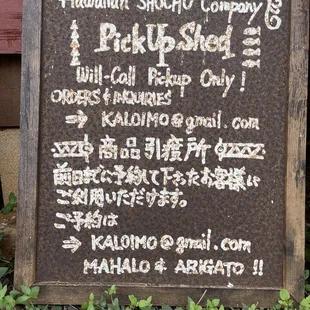 Hawaiian SHOCHU Company
PickUp Shed
Will-Call Pickup Only!
ORDERS & INQUIRIES
→ KALOIMO@gmail.com
商品引渡所
前日までに予約して下さったお客様に
ご利用いただけます。
ご予約は
→ KALOIMO@gmail.com
MAHALO & ARIGATO !!